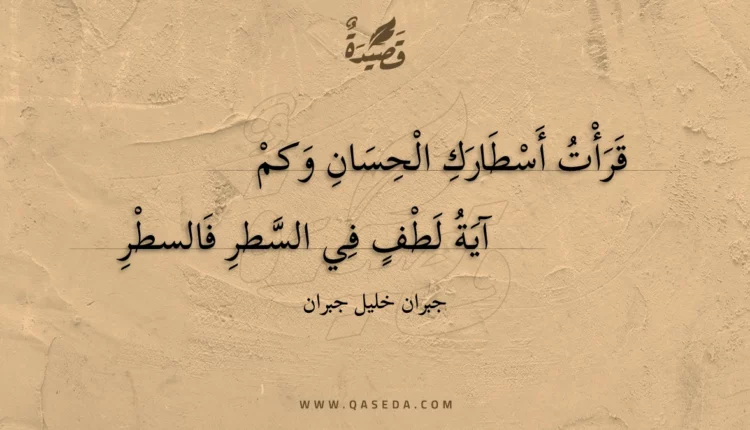 قَصِيْدَةٌ
قَرَأْتُ أَسْطَارَكِ الْحِسَانِ وَكمْ
آيَةُ لَطْفٍ فِي السَّطرِ فَالسطْرِ
جبران خليل جبران
WWW.QASEDA.COM